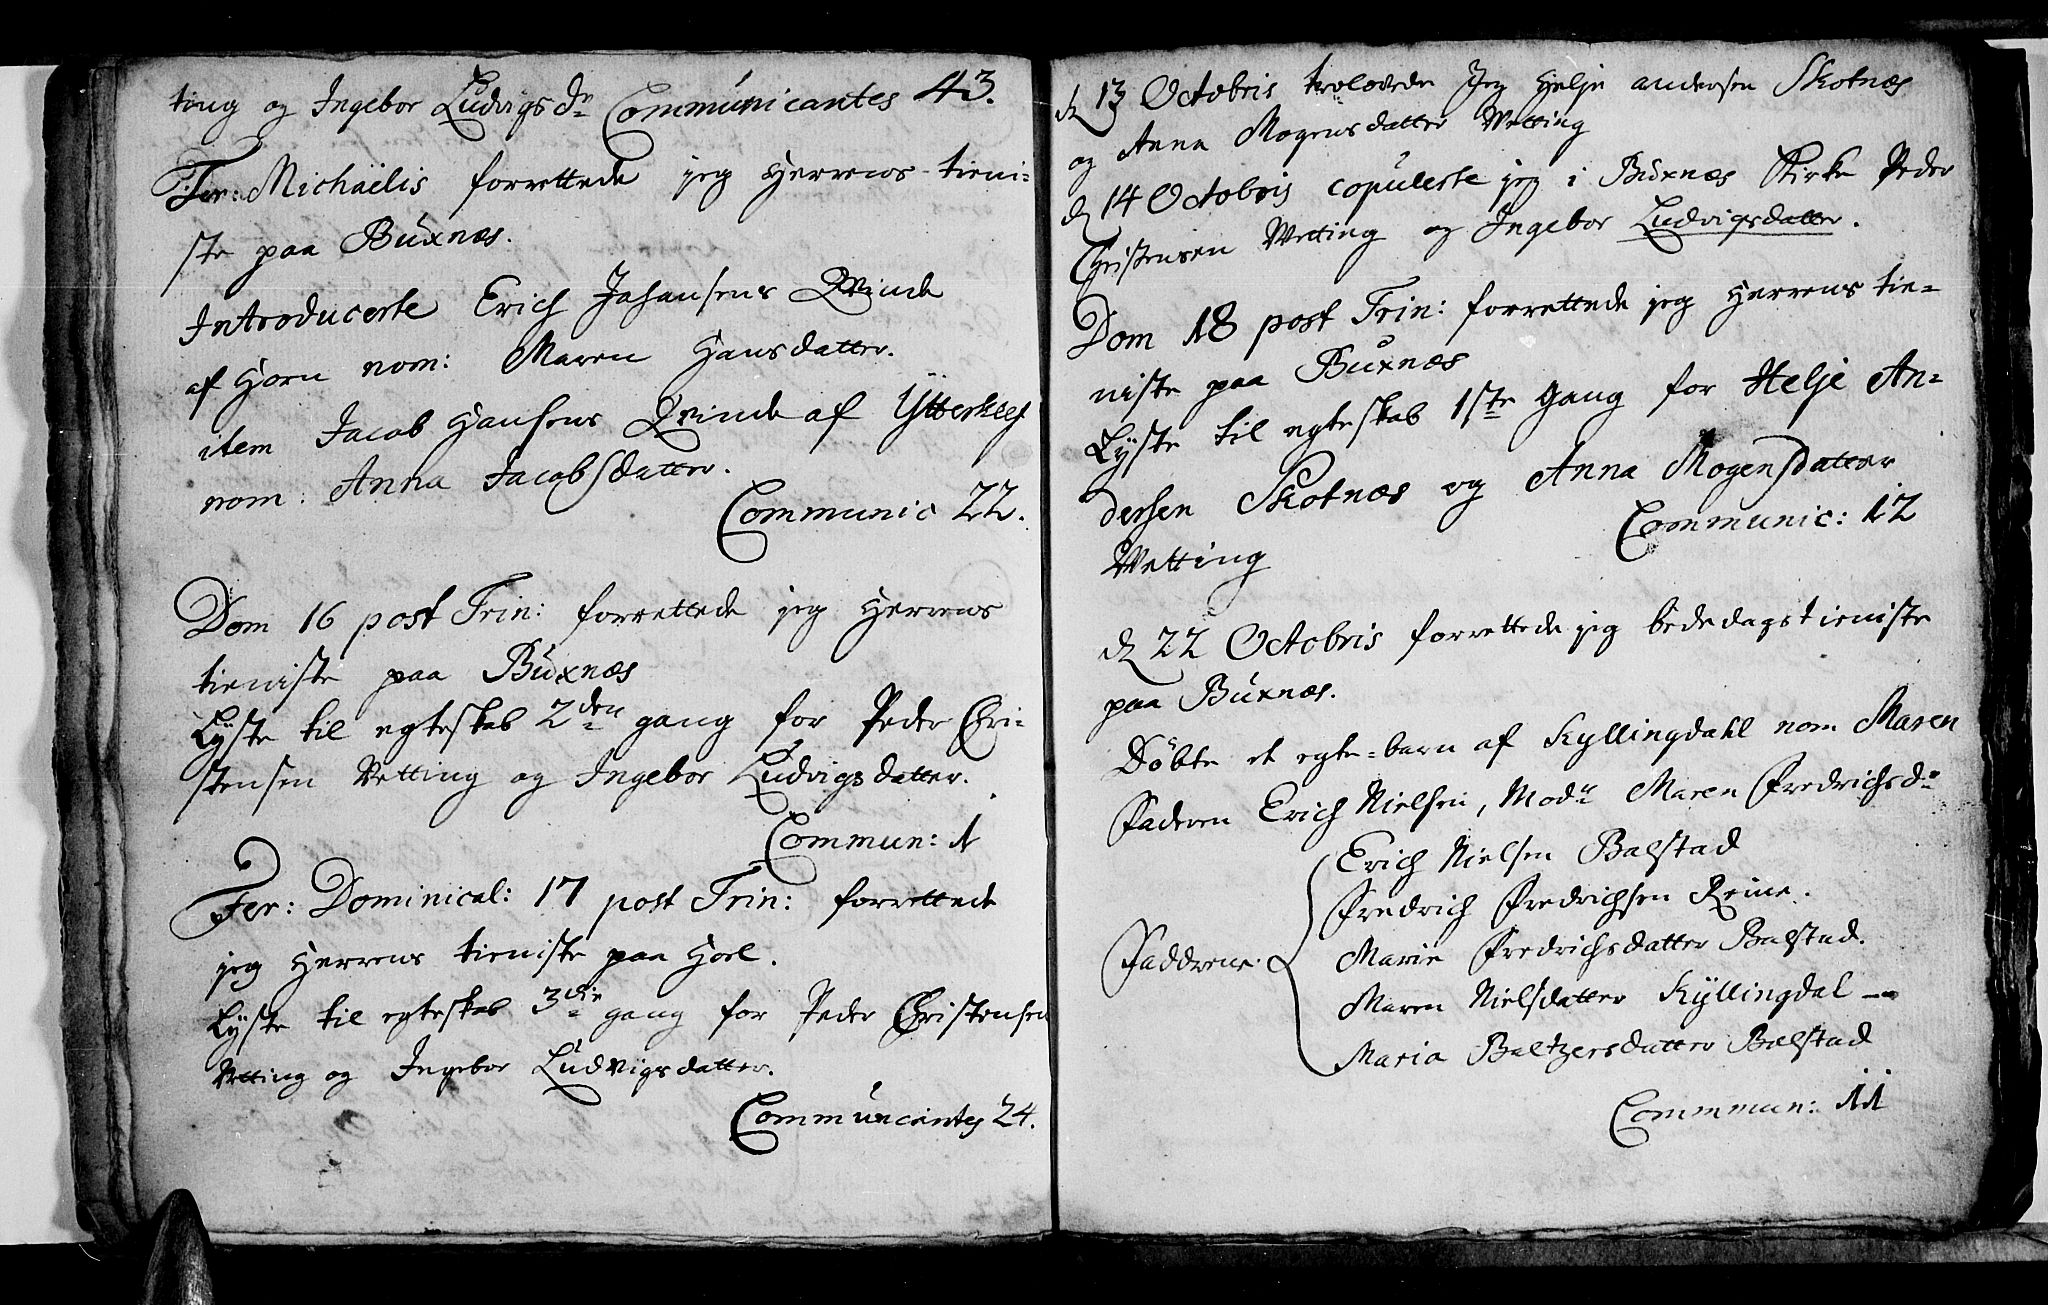 ting og Ingebor Ludvigsdr Communicantes 43.
Fer: Michaëlis forrettede jeg Herrens tieni-
ste paa Buxnæs.
Introducerte Erich Johansens Qvinde
af Horn nom: Maren Hansdatter.
item Jacob Hansens Qvinde af Ytterklef
nom: Anna Jacobsdatter.
Communic 22.
Dom 16 post Trin: forrettede jeg Herrens
tieniste paa Buxnæs
Lyste til egteskab 2den gang for Peder Chri-
stensen Vetting og Ingebor Ludvigsdatter.
Commun: 1
Fer: Dominical: 17 post Trin: forrettede
jeg Herrens tieniste paa Hoel.
Lyste til egteskab 3die gang for Peder Christensen
Vetting og Ingebor Ludvigsdatter.
Communcantes 24.
d 13 Octobris trolovede Jeg Helje Andersen Skotnæs
og Anna Mogensdatter Vetting
d 14 Octobris copulerte jeg i Buxnæs Kirke Peder
Christensen Vetting og Ingebor Ludvigsdatter.
Dom 18 post Trin: forrettede jeg Herrens tie-
niste paa Buxnæs
Lyste til egteskab 1ste Gang for Helje An-
dersen Skotnæs og Anna Mogensdatter
Communic: 12
Vetting
d 22 Octobris forrettede jeg bededagstieniste
paa Buxnæs.
Döbte et egte-barn af Kyllingdahl nom Maren
Faderen Erich Nielsen, Modr Maren Fredrichsdr
Erich Nielsen Balstad
Fredrich Fredrichsen Reine.
Faddrene: Marie Fredrichsdatter Balstad.
Maren Nielsdatter Kyllingdal
Maria Baltzersdatter Balstad
Commmun: 11